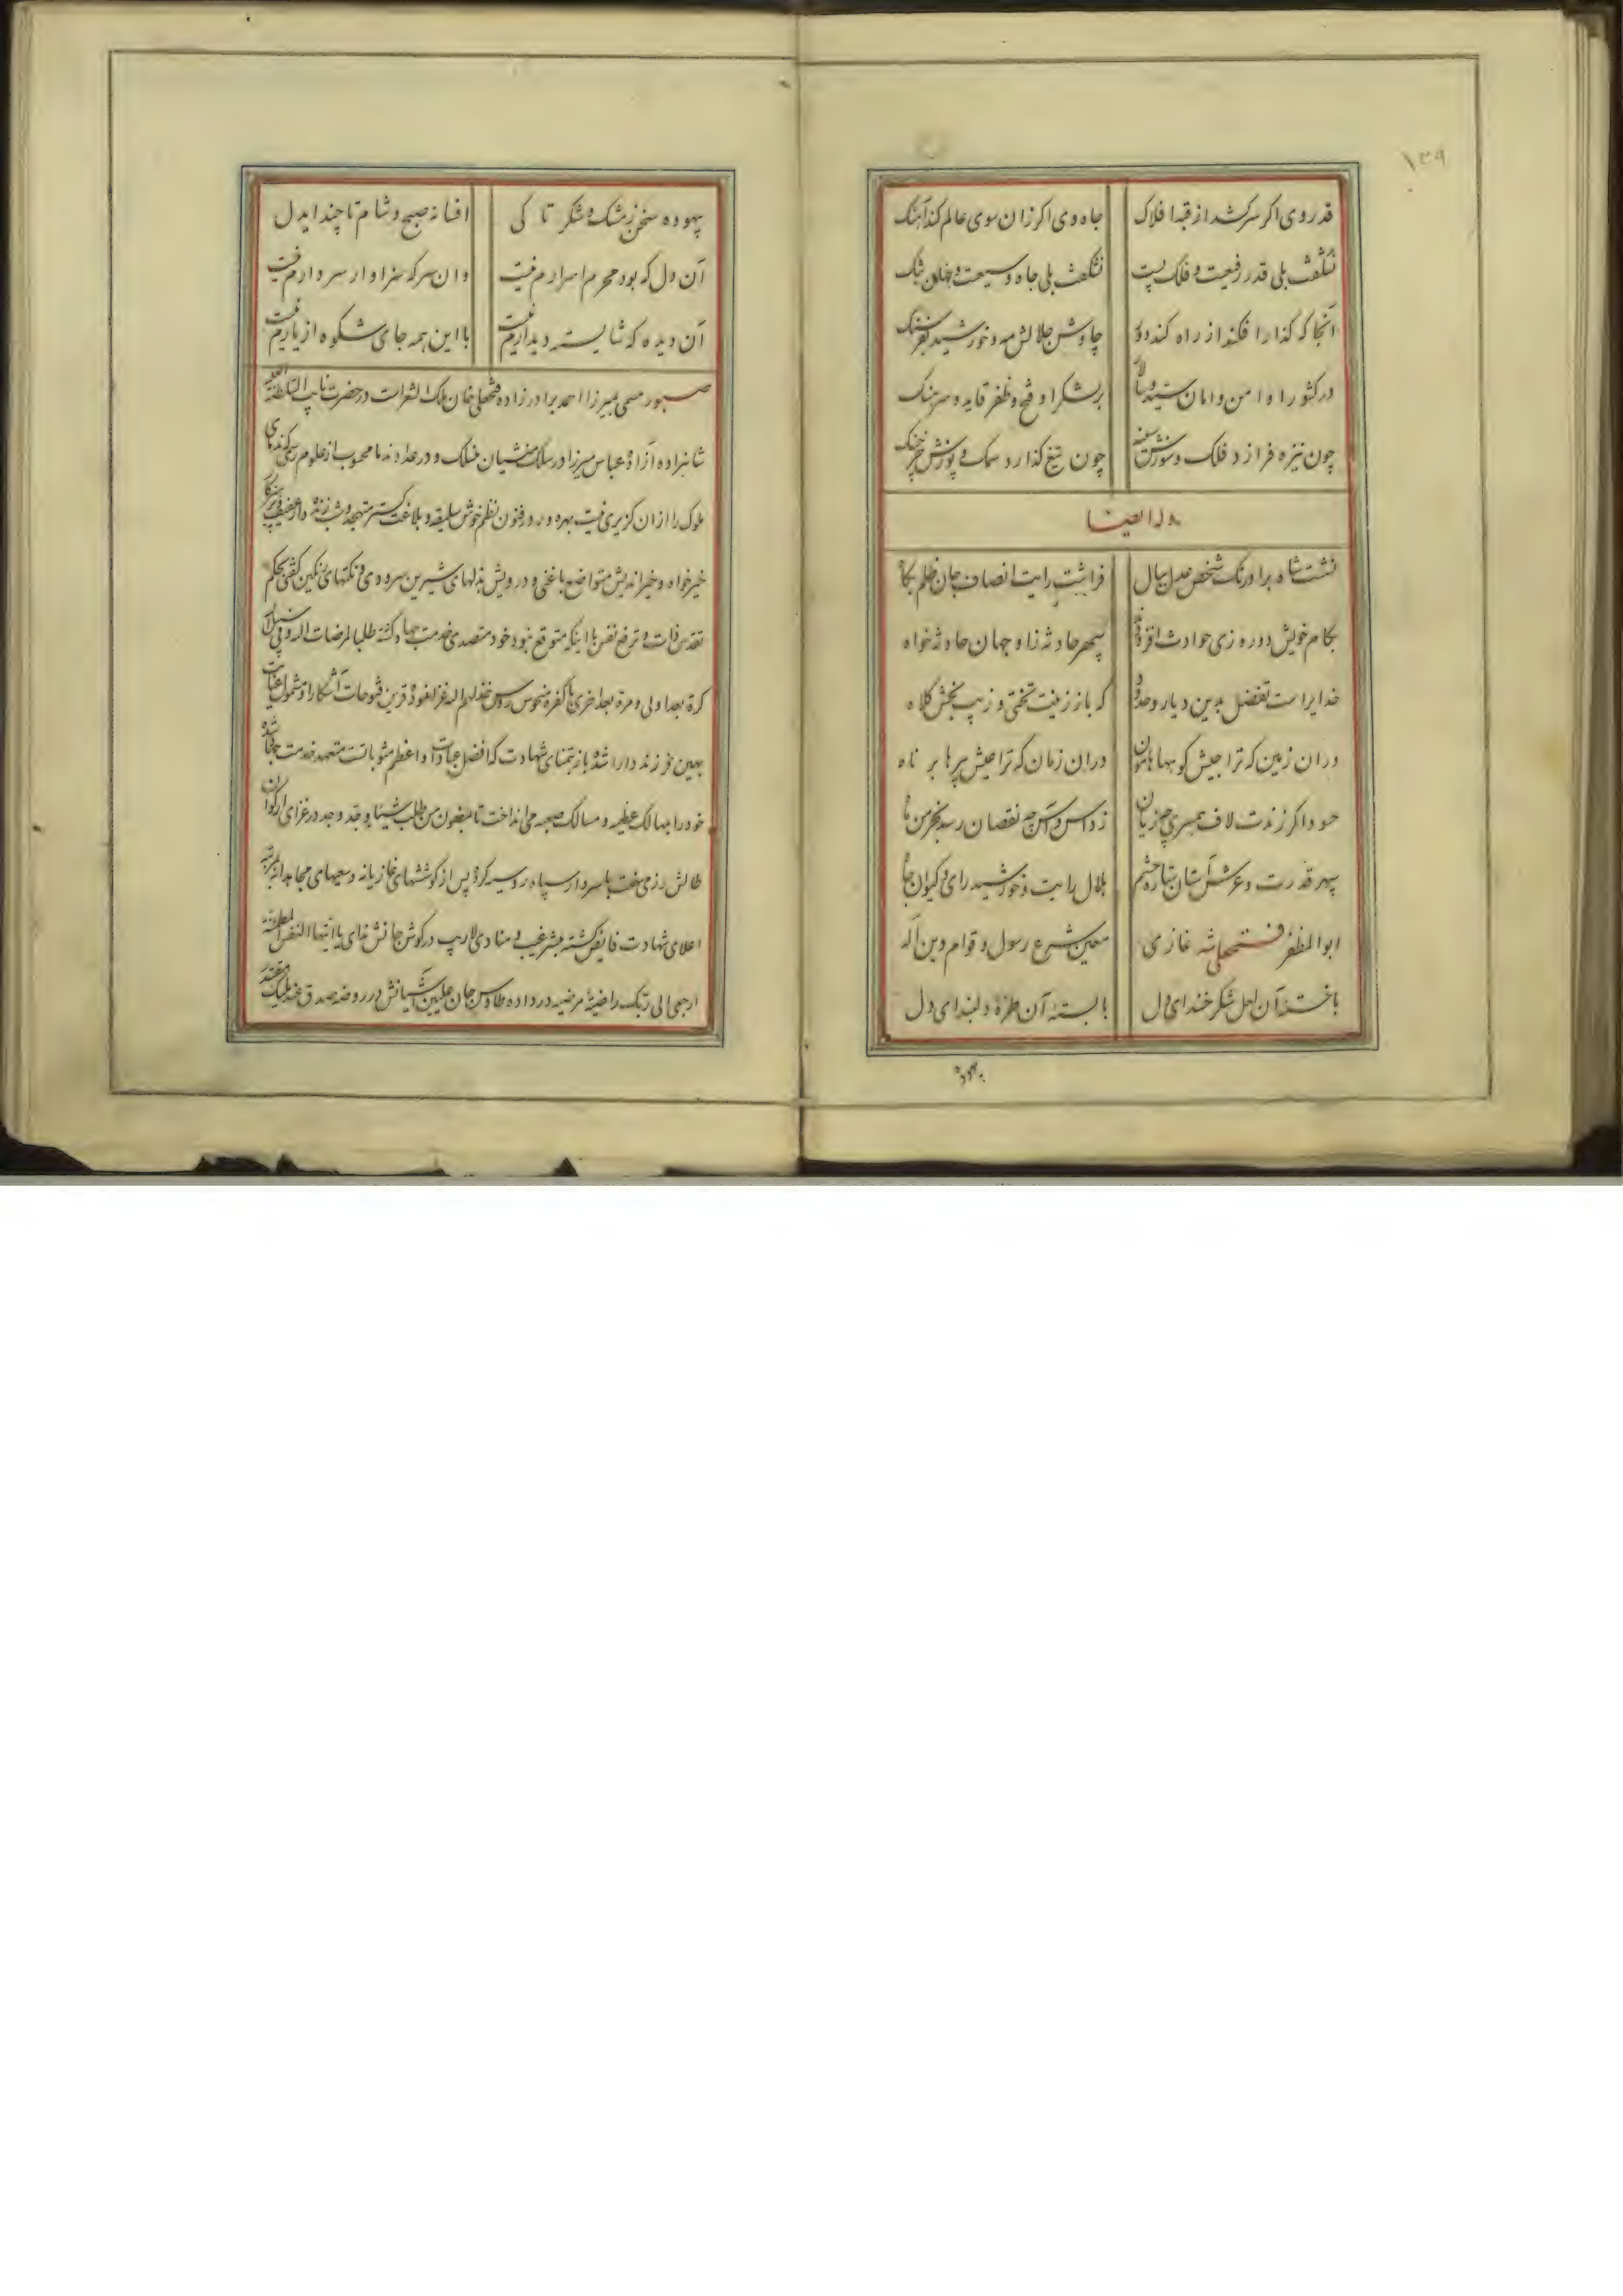 ۱۳۹
قدر وی اکر سرکشد از قبه افلاک جاه وی اکر زان سوی عالم کند آهنک
نشکفت بلی قدر رفیعست و فلک پست نشکفت بلی جاه وسیعست و جهان تنک
آنجا که کذارا فکند از راه کند دور چاوش جلالش مه و خورشید بفرسنک
در کشور او امن و امان سید و سالار بر لشکر او فتح و ظفر قاید و سرهنک
چون نیزه فرازد فلک و چون تیغ کذارد سمک و
وله ایضا
نشست شاه بر اورنک شخص عدل ببال فراشت رایت انصاف جان ظلم بکاه
بکام خویش دوره زی حوادث سپهر حادثه زا و جهان حادثه خواه
خدایراست تفضل بدین دیار و حدود که باز زینت تختی و زیب بخش کلاه
در ان زمین که ترا جیش کوهها هامون در ان زمان که ترا عیش پیرها برناه
حسود اکر زندت لاف همسری چه زیان ز داس و آس چه نقصان رسد بخرمن ماه
سپهر قدرت و عرش آستان ستاره حشم هلال رایت و خورشید رای و کیوان جاه
ابوالمظفر فتحعلی شه غازی معین شرع رسول و قوام دین اله
یا خسته آن لعل شکر خند ای دل یا بسته آن طره دلبند ای دل
بیهوده
بیهوده سخن ز مشک و شکر تا کی افسانه صبح و شام تا چند ایدل
آن دل که بود محرم اسرارم نیست وان سر که سزاوار سر دارم نیست
آن دیده که شایسته دیدارم نیست با این همه جای شکوه از یارم نیست
صبور مسمی بمیرزا احمد برادرزاده فتحعلی خان ملک الشعرات در حضرت نایب السلطنه العلیه
شاهزاده آزاده عباس میرزا در سلک منشیان منسلک و در عداد ندما محسوب از علوم رسمی که ندمای
ملوک را از ان کزیری نیست بهره ور و در فنون نظم خوش سلیقه و بلاغت کستر متهجد و شب زنده دار عفیف و پرهیزکار
خیرخواه و خیراندیش متواضع با غنی و درویش بذلهای شیرین سرودی و نکتهای رنکین کفتی بحکم
تقدس ذات و ترفع نفس با اینکه متوقع نبود خود متصدی خدمت جهاد کشته طلبا لمرضات اله و فی سبیل اله
کرة بعد اولی و مرة بعد اخری با کفره منحوس روس خذلهم اله غزا نمود قرین فتوحات آشکارا و مشمول عنایات
بهین فرزند دارا شده باز بتمنای شهادت که افضل عبادات و اعظم مثوباتست متعهد خدمت جهاد شده
خود را بمهالک عظیمه و مسالک صعبه می انداخت تا بمضمون من طلب شیئا و جد وجد در غزای ارکوان
طالش رزمی سخت با سردار سپاه روسیه کرد پس از کوششهای غازیانه و سعیهای مجاهدانه بمرتبه
اعلای شهادت فایض کشته مبشر غیب و منادی لاریب در کوش جانش ندای یا ایتها النفس المطمئنه
ارجعی الی ربک راضیة مرضیه در داده طاوس جان علیین آشیانش در روضه صدق عند ملیک مقتدر